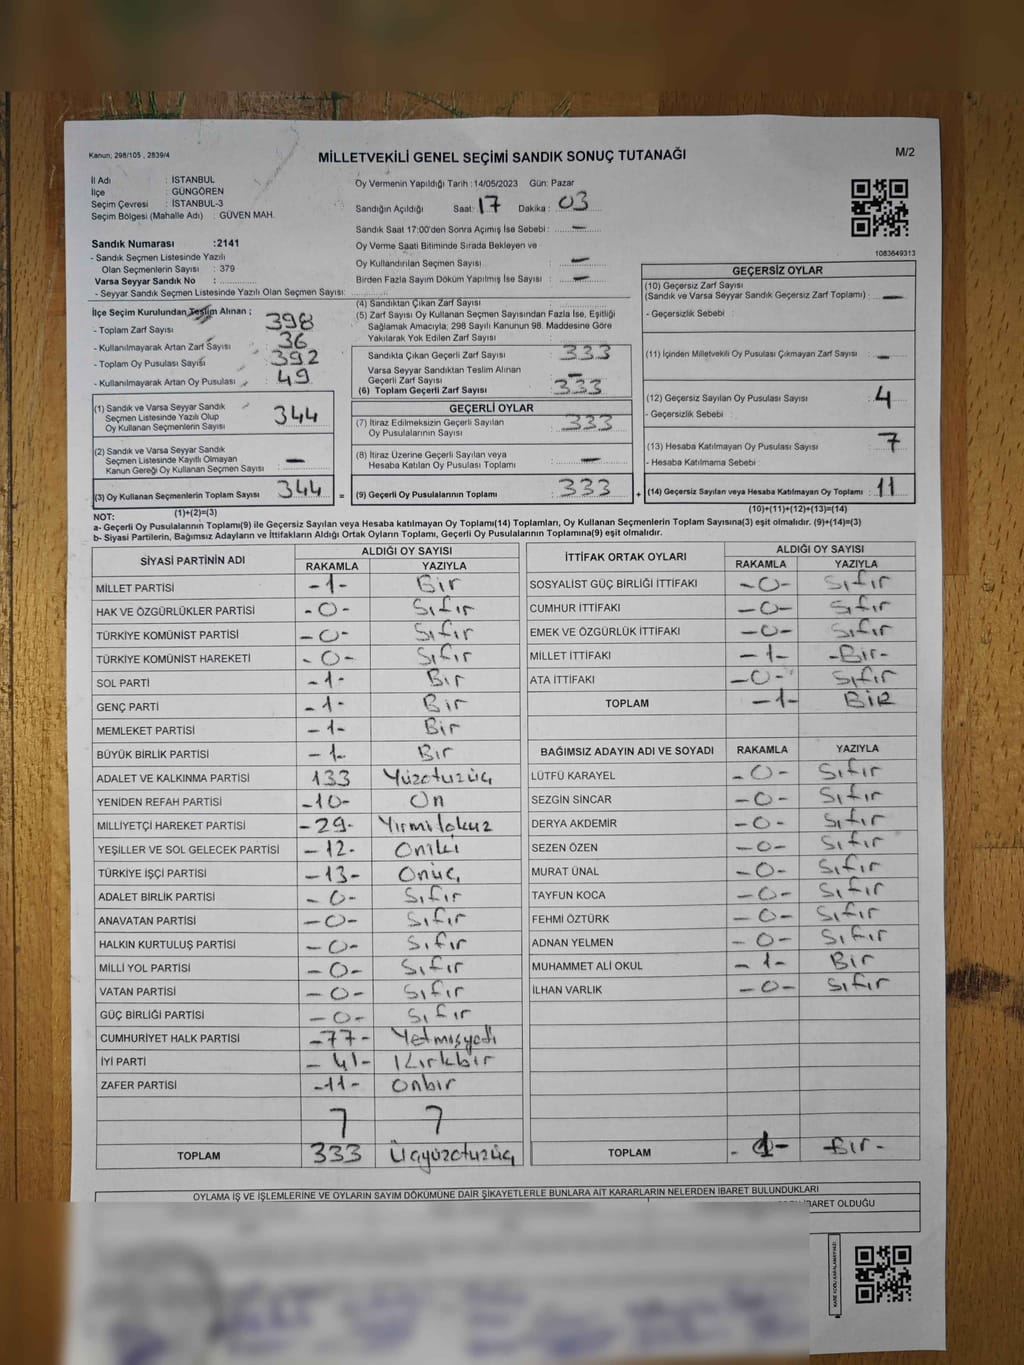 Kanun; 298/105 , 2839/4
MİLLETVEKİLİ GENEL SEÇİMİ SANDIK SONUÇ TUTANAĞI
M/2
İl Adı : İSTANBUL
İlçe : GÜNGÖREN
Seçim Çevresi : İSTANBUL-3
Seçim Bölgesi (Mahalle Adı) : GÜVEN MAH.
Oy Vermenin Yapıldığı Tarih :14/05/2023 Gün: Pazar
Sandığın Açıldığı Saat: 17 Dakika : 03
Sandık Saat 17:00'den Sonra Açımış İse Sebebi : -
Oy Verme Saati Bitiminde Sırada Bekleyen ve
Oy Kullandırılan Seçmen Sayısı : -
Birden Fazla Sayım Döküm Yapılmış İse Sayısı : -
1083649313
Sandık Numarası :2141
- Sandık Seçmen Listesinde Yazılı
Olan Seçmenlerin Sayısı : 379
Varsa Seyyar Sandık No :
- Seyyar Sandık Seçmen Listesinde Yazılı Olan Seçmen Sayısı:
İlçe Seçim Kurulundan Teslim Alınan ;
- Toplam Zarf Sayısı : 398
- Kullanılmayarak Artan Zarf Sayısı : 36
- Toplam Oy Pusulası Sayısı : 392
- Kullanılmayarak Artan Oy Pusulası : 49
(1) Sandık ve Varsa Seyyar Sandık
Seçmen Listesinde Yazılı Olup
Oy Kullanan Seçmenlerin Sayısı : 344
(2) Sandık ve Varsa Seyyar Sandık
Seçmen Listesinde Kayıtlı Olmayan
Kanun Gereği Oy Kullanan Seçmen Sayısı : -
(3) Oy Kullanan Seçmenlerin Toplam Sayısı : 344 =
(1)+(2)=(3)
(4) Sandıktan Çıkan Zarf Sayısı :
(5) Zarf Sayısı Oy Kullanan Seçmen Sayısından Fazla İse, Eşitliği
Sağlamak Amacıyla; 298 Sayılı Kanunun 98. Maddesine Göre
Yakılarak Yok Edilen Zarf Sayısı :
Sandıkta Çıkan Geçerli Zarf Sayısı : 333
Varsa Seyyar Sandıktan Teslim Alınan
Geçerli Zarf Sayısı : -
(6) Toplam Geçerli Zarf Sayısı : 333
GEÇERLİ OYLAR
(7) İtiraz Edilmeksizin Geçerli Sayılan
Oy Pusulalarının Sayısı : 333
(8) İtiraz Üzerine Geçerli Sayılan veya
Hesaba Katılan Oy Pusulası Toplamı : -
(9) Geçerli Oy Pusulalarının Toplamı : 333 +
GEÇERSİZ OYLAR
(10) Geçersiz Zarf Sayısı
(Sandık ve Varsa Seyyar Sandık Geçersiz Zarf Toplamı) : -
- Geçersizlik Sebebi :
(11) İçinden Milletvekili Oy Pusulası Çıkmayan Zarf Sayısı : -
(12) Geçersiz Sayılan Oy Pusulası Sayısı : 4
- Geçersizlik Sebebi :
(13) Hesaba Katılmayan Oy Pusulası Sayısı : 7
- Hesaba Katılmama Sebebi :
(14) Geçersiz Sayılan veya Hesaba Katılmayan Oy Toplamı : 11
(10)+(11)+(12)+(13)=(14)
NOT:
a- Geçerli Oy Pusulalarının Toplamı(9) ile Geçersiz Sayılan veya Hesaba katılmayan Oy Toplamı(14) Toplamları, Oy Kullanan Seçmenlerin Toplam Sayısına(3) eşit olmalıdır. (9)+(14)=(3)
b- Siyasi Partilerin, Bağımsız Adayların ve İttifakların Aldığı Ortak Oyların Toplamı, Geçerli Oy Pusulalarının Toplamına(9) eşit olmalıdır.
SİYASİ PARTİNİN ADI ALDIĞI OY SAYISI
RAKAMLA YAZIYLA
MİLLET PARTİSİ -1- Bir
HAK VE ÖZGÜRLÜKLER PARTİSİ -0- Sıfır
TÜRKİYE KOMÜNİST PARTİSİ -0- Sıfır
TÜRKİYE KOMÜNİST HAREKETİ -0- Sıfır
SOL PARTİ -1- Bir
GENÇ PARTİ -1- Bir
MEMLEKET PARTİSİ -1- Bir
BÜYÜK BİRLİK PARTİSİ -1- Bir
ADALET VE KALKINMA PARTİSİ 133 Yüzotuzüç
YENİDEN REFAH PARTİSİ -10- On
MİLLİYETÇİ HAREKET PARTİSİ -29- Yirmidokuz
YEŞİLLER VE SOL GELECEK PARTİSİ -12- Oniki
TÜRKİYE İŞÇİ PARTİSİ -13- Onüç
ADALET BİRLİK PARTİSİ -0- Sıfır
ANAVATAN PARTİSİ -0- Sıfır
HALKIN KURTULUŞ PARTİSİ -0- Sıfır
MİLLİ YOL PARTİSİ -0- Sıfır
VATAN PARTİSİ -0- Sıfır
GÜÇ BİRLİĞİ PARTİSİ -0- Sıfır
CUMHURİYET HALK PARTİSİ -77- Yetmişyedi
İYİ PARTİ -41- Kırkbir
ZAFER PARTİSİ -11- Onbir
TOPLAM 333 Üçyüzotuzüç
İTTİFAK ORTAK OYLARI ALDIĞI OY SAYISI
RAKAMLA YAZIYLA
SOSYALIST GÜÇ BİRLİĞİ İTTİFAKI -0- Sıfır
CUMHUR İTTİFAKI -0- Sıfır
EMEK VE ÖZGÜRLÜK İTTİFAKI -0- Sıfır
MİLLET İTTİFAKI -1- -Bir-
ATA İTTİFAKI -0- Sıfır
TOPLAM -1- BİR
BAĞIMSIZ ADAYIN ADI VE SOYADI RAKAMLA YAZIYLA
LÜTFÜ KARAYEL -0- Sıfır
SEZGİN SİNCAR -0- Sıfır
DERYA AKDEMİR -0- Sıfır
SEZEN ÖZEN -0- Sıfır
MURAT ÜNAL -0- Sıfır
TAYFUN KOCA -0- Sıfır
FEHMİ ÖZTÜRK -0- Sıfır
ADNAN YELMEN -0- Sıfır
MUHAMMET ALİ OKUL -1- Bir
İLHAN VARLIK -0- Sıfır
TOPLAM -1- -Bir-
OYLAMA İŞ VE İŞLEMLERİNE VE OYLARIN SAYIM DÖKÜMÜNE DAİR ŞİKAYETLERLE BUNLARA AİT KARARLARIN NELERDEN İBARET BULUNDUKLARI
İBARET OLDUĞU